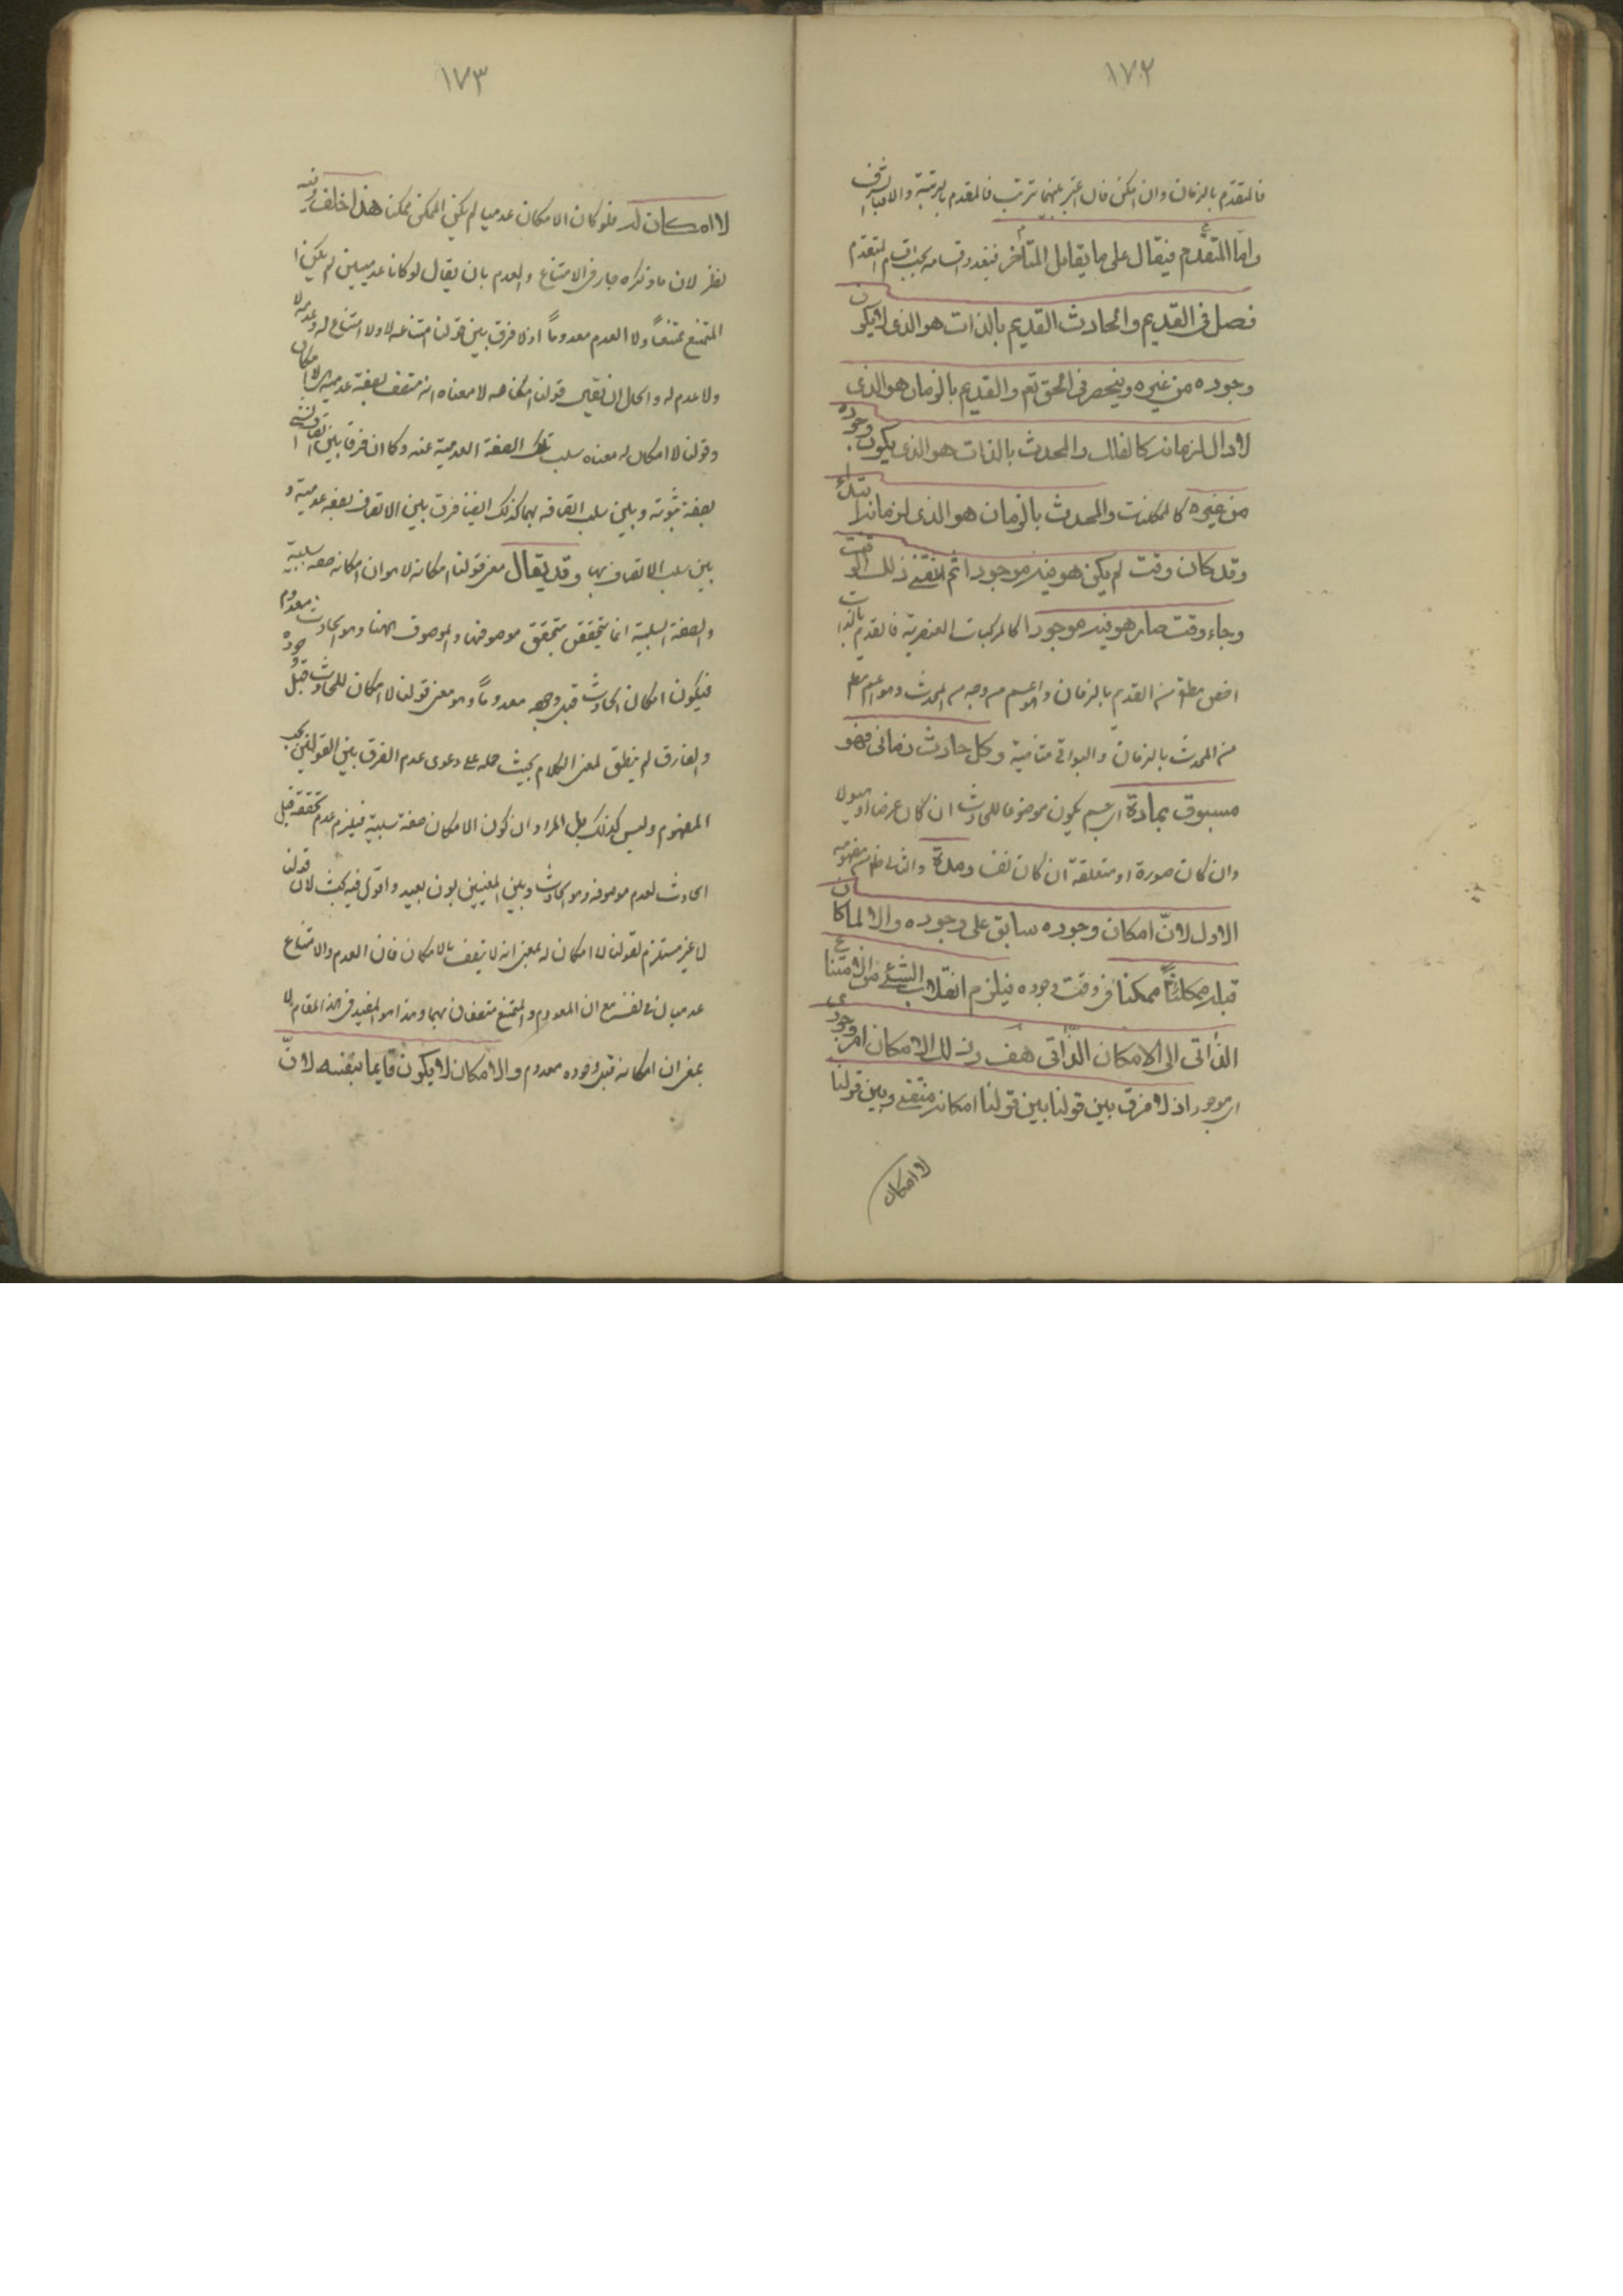 ١٧٢
فالمتقدم بالزمان وان امكن فان اعتبر بينهما ترتب فالمتقدم بالرتبة والا فبالشرف
واما المتقدم فيقال على ما يقابل المتأخر فيتعدد اقسامه بحسب اقسام المتقدم
فصل فى القديم والحادث القديم بالذات هو الذى لا يكون
وجوده من غيره وينحصر فى الحق تع والقديم بالزمان هو الذى
لا اول لزمانه كالفلك والمحدث بالذات هو الذى يكون وجوده
من غيره كالممكنات والمحدث بالزمان هو الذى لزمانه ابتداء
وقد كان وقت لم يكن هو فيه موجودا ثم انقضى ذلك الوقت
وجاء وقت صار هو فيه موجودا كالمركبات العنصرية فالقديم بالذات
اخص مطلقا من القديم بالزمان والاعم من وجه من المحدث وهو اعم مطلقا
من المحدث بالزمان والبواقى متنافية وكل حادث زمانى فهو
مسبوق بمادة اى جسم يكون موضوعا للحادث ان كان عرضا او هيولى
وان كان صورة او متعلقه ان كان نفسا ومدة والثانى ظاهر من مفهومه
الاول لان امكان وجوده سابق على وجوده والا لما كان
قبله ممكنا ممكنا فى وقت وجوده فيلزم انقلاب الشئ من الامتناع
الذاتى الى الامكان الذاتى هف وذلك الامكان امر وجودى
اى موجود اذ لا فرق بين قولنا بين قولنا امكانه منتفى وبين قولنا
لا امكان
١٧٣
لا امكان له فلو كان الامكان عدميا لم يكن الممكن ممكنا هذا خلف وفيه
نظر لان ما ذكره جار فى الامتناع والعدم بان يقال لو كانا عدميين لم يكن
الممتنع ممتنعا ولا المعدوم معدوما اذ لا فرق بين قولنا امتناعه لا ولا امتناع له وعدمه لا
ولا عدم له والحل ان نقيس قولنا امكانه لا معناه انه متصف بصفة عدمية هى الامكان
وقولنا لا امكان له معناه سلب تلك الصفة العدمية عنه وكما ان فرقا بين اتصاف الشئ
بصفة ثبوتية وبين سلب اتصافه بها كذلك ايضا فرق بين الاتصاف بصفة عدمية و
بين سلب الاتصاف بها وقد يقال معنى قولنا امكانه لا هو ان امكانه صفة سلبية
والصفة السلبية انما يتحقق بتحقق موصوفها والموصوف ههنا وهو الحادث معدوم
فيكون امكان الحادث قبل وجوده معدوما وهو معنى قولنا لا امكان للحادث قبل وجوده
والفارق لم ينطق لمعنى الكلام بحيث حمله على دعوى عدم الفرق بين القولين بحسب
المفهوم وليس كذلك بل المراد ان كون الامكان صفة سلبية فيلزم عدم تحققه قبل
الحادث لعدم موصوفه وهو الحادث وبين المعنيين بون بعيد واقول فيه بحث لان قولنا
لا غير مستلزم لقولنا لا امكان له بمعنى انه لا يتصف بالامكان فان العدم والامتناع
عدميان فى نفسه مع ان المعدوم والممتنع متصفان بهما وهذا هو المفيد فى هذا المقام لا
بمعنى ان امكانه قبل وجوده معدوم والامكان لا يكون قايما بنفسه لانّ